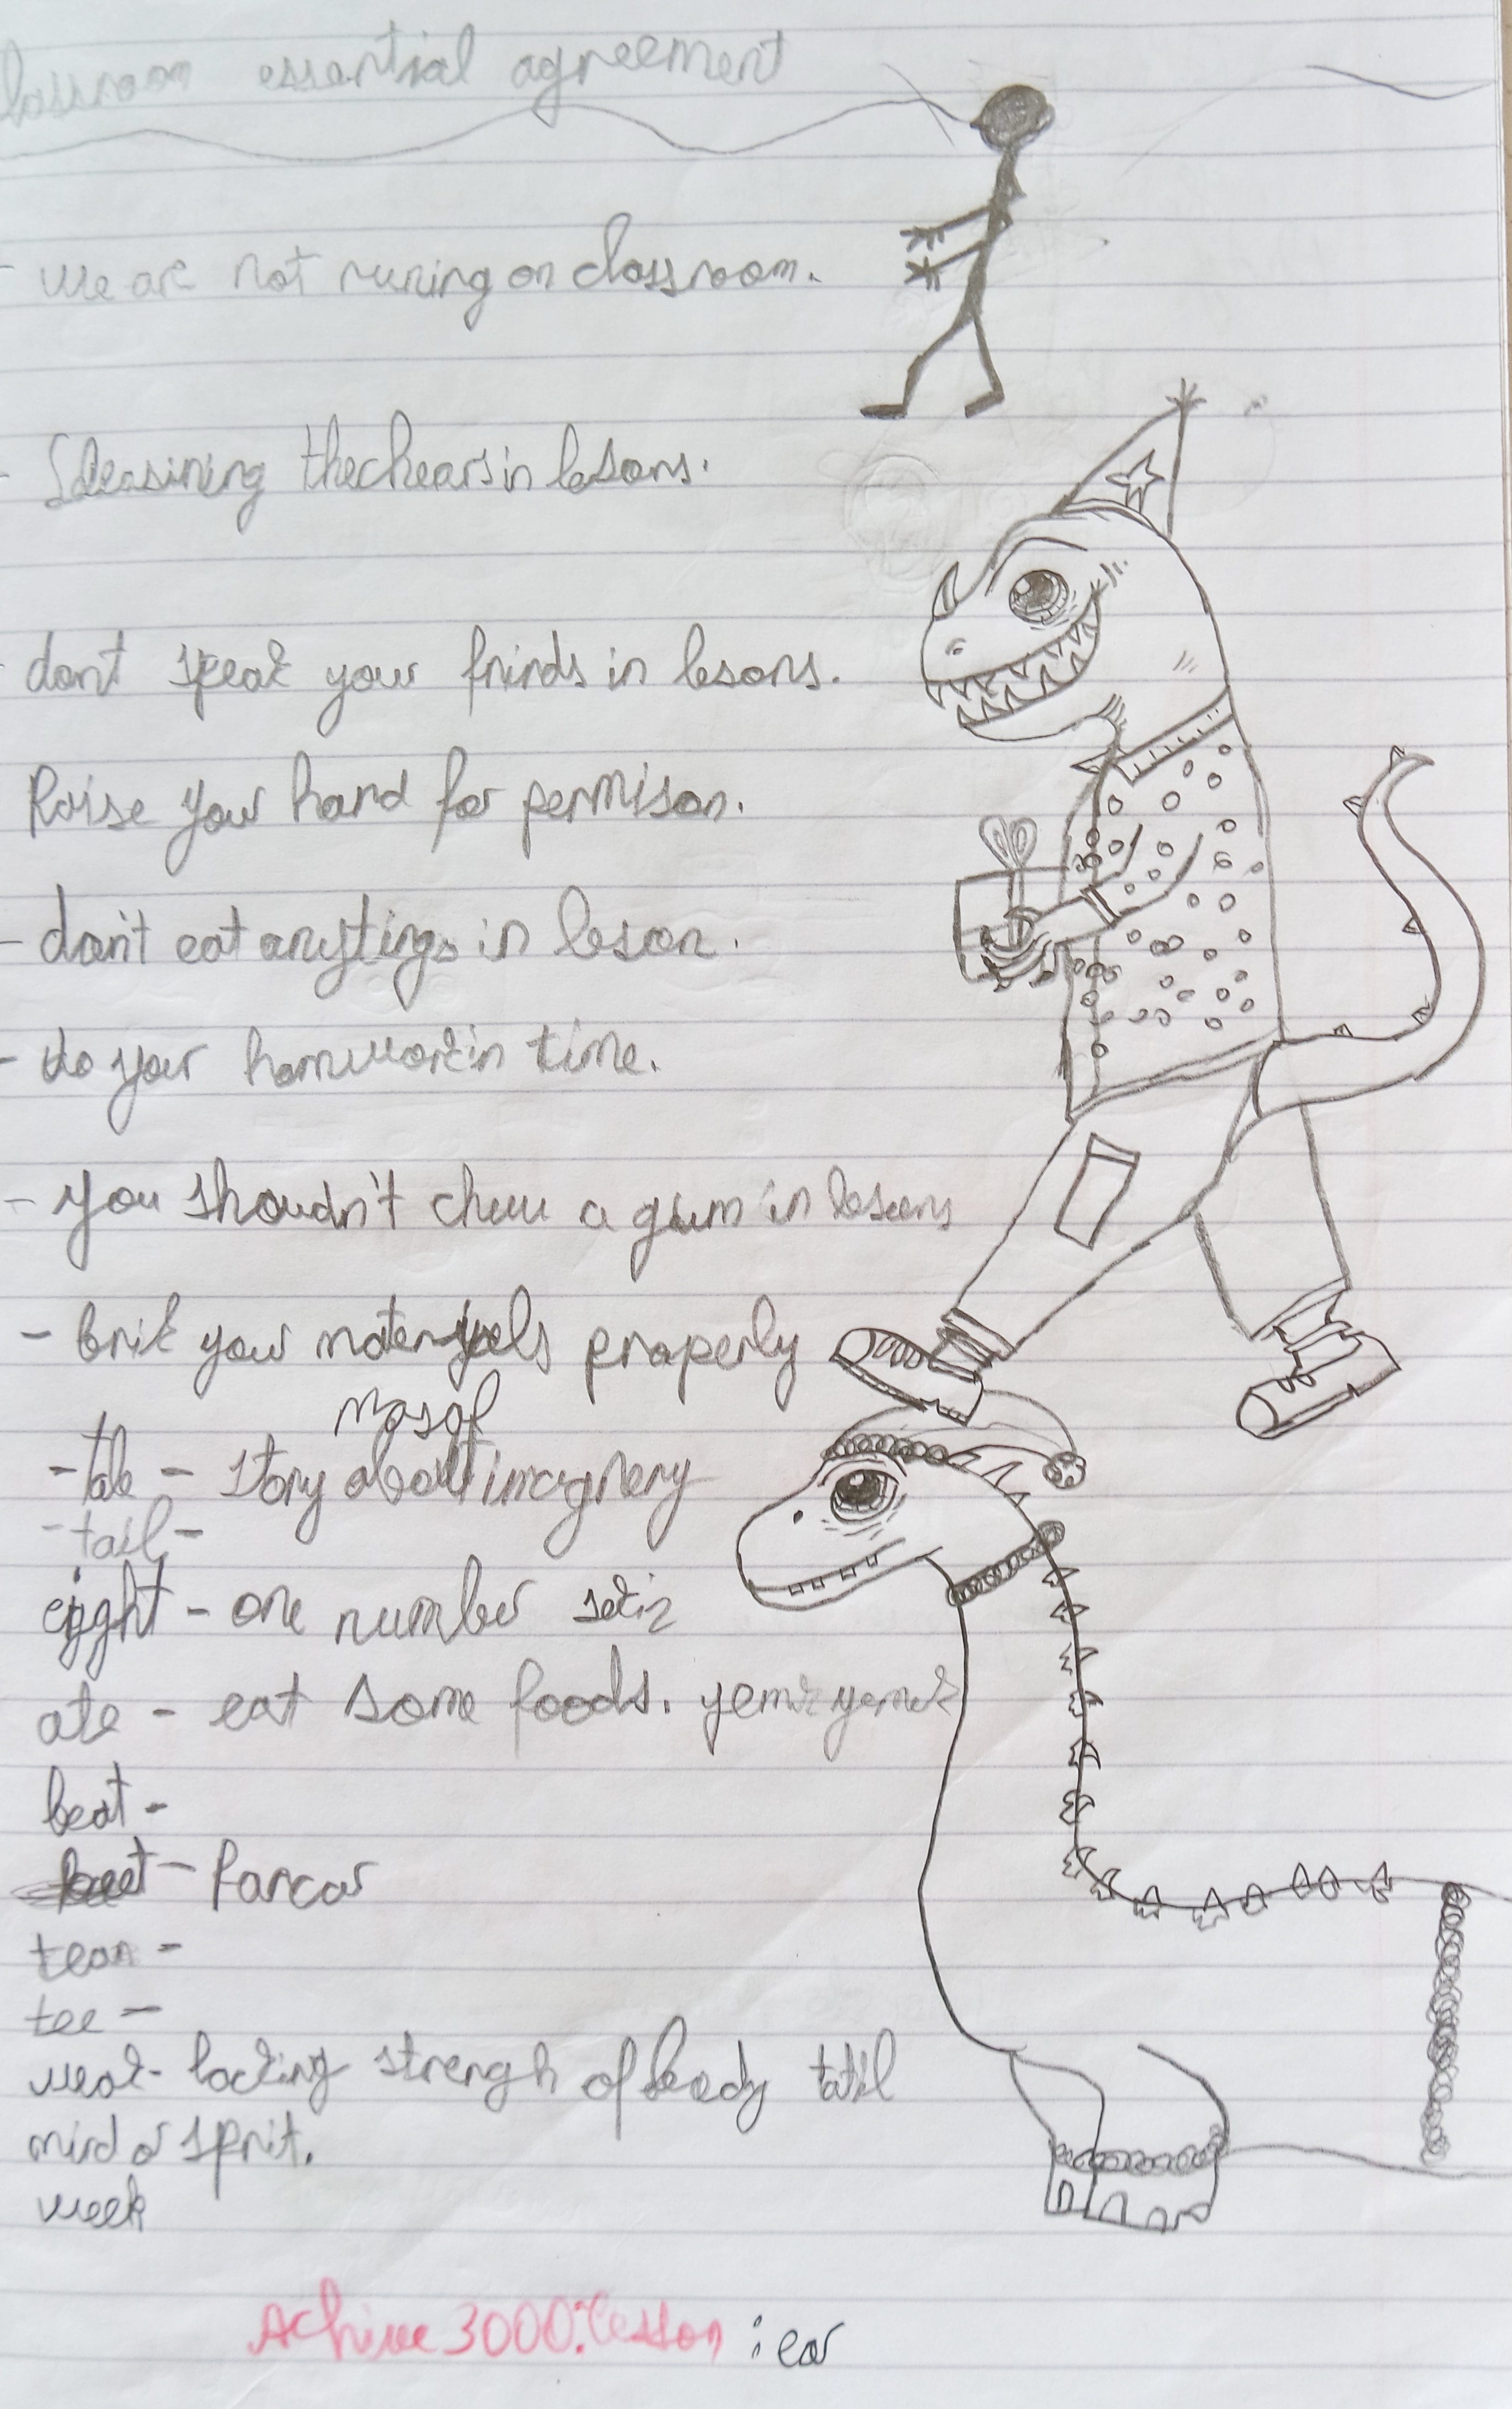 lassroom essential agreement
- we are not runing on classroom.
- thechears in lesons.
- dont speak your frinds in lesons.
Raise your hand for permison.
- don't eat anytings in leson.
- do your homework in time.
- you shoudn't chew a gum in lesons
- brik your properly
masal
- tale - story about imagnery
- tail -
eight - one number sekiz
ate - eat some foods. yemek yemek
beat -
beet - Pancar
tea -
tee -
weak - lacking strengh of body tatil
mind or sprit.
week
Achive3000:lesson : ear